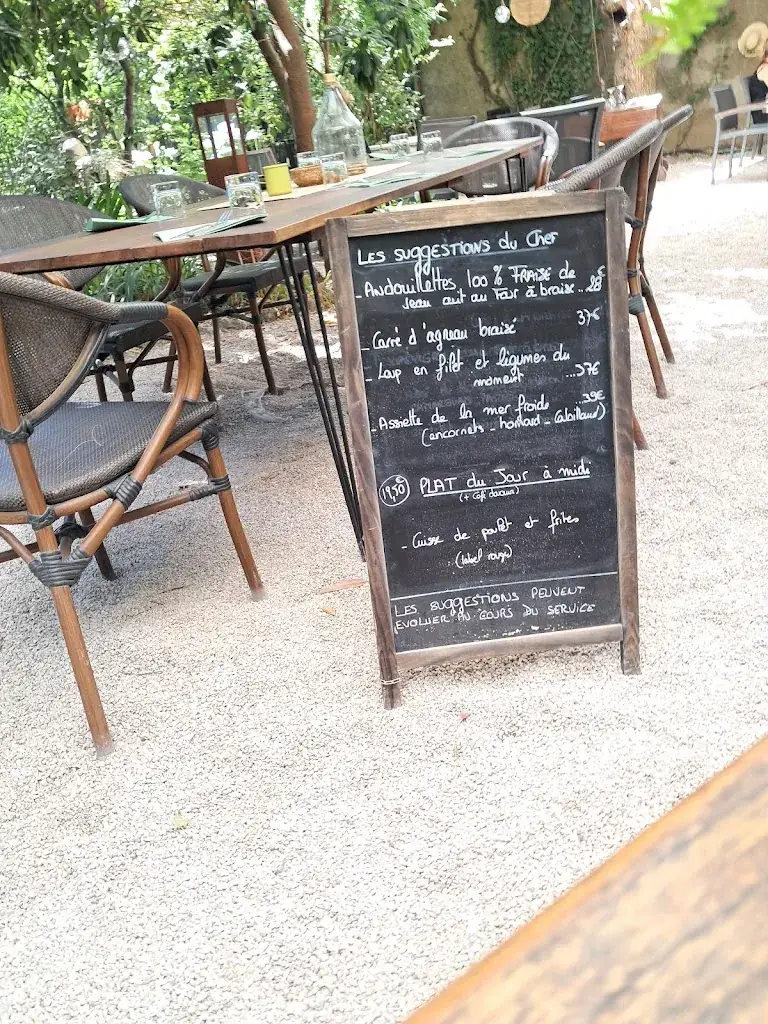 LES SUGGESTIONS du Chef
- ANDOUILLETTES 100 % FRAISE de
veau cuit au Four à braise .. 28€
- Carré d'agneau braisé 37€
- Loup en filet et légumes du
moment ...37€
- Assiette de la mer froide ...39€
(encornets - homard - Cabillaud)
19,50 PLAT du JOUR à midi
(+ Café douceur)
- Cuisse de poulet et frites
(label rouge)
LES SUGGESTIONS PEUVENT
EVOLUER AU COURS DU SERVICE